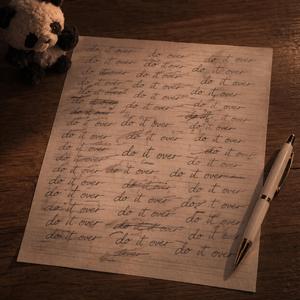 do it over do it over do it over
do it over do it over do it over
do it over do it over
do it over do it over do it over
do it over do it over do it over
do it over do it over
do it over do it over
do it over do it over do it over
do it over do it over do it over
do it over do it over do it over
do it over do it over do it over
do it over do it over
do it over do it over do it over
do it over do it over
do it over do it over
do it over do it over do it over
do it over do it over do it over
do it over do it over do it over
over